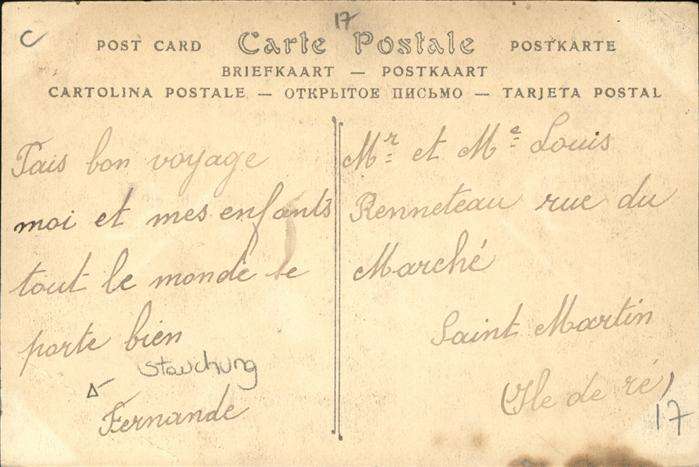 17
POST CARD Carte Postale POSTKARTE
BRIEFKAART — POSTKAART
CARTOLINA POSTALE — ОТКРЫТОЕ ПИСЬМО — TARJETA POSTAL
Fais bon voyage
moi et mes enfants
tout le monde se
porte bien
Stauchung
Fernande
Mr et Me Louis
Renneteau rue du
Marché
Saint Martin
(Ile de ré)
17